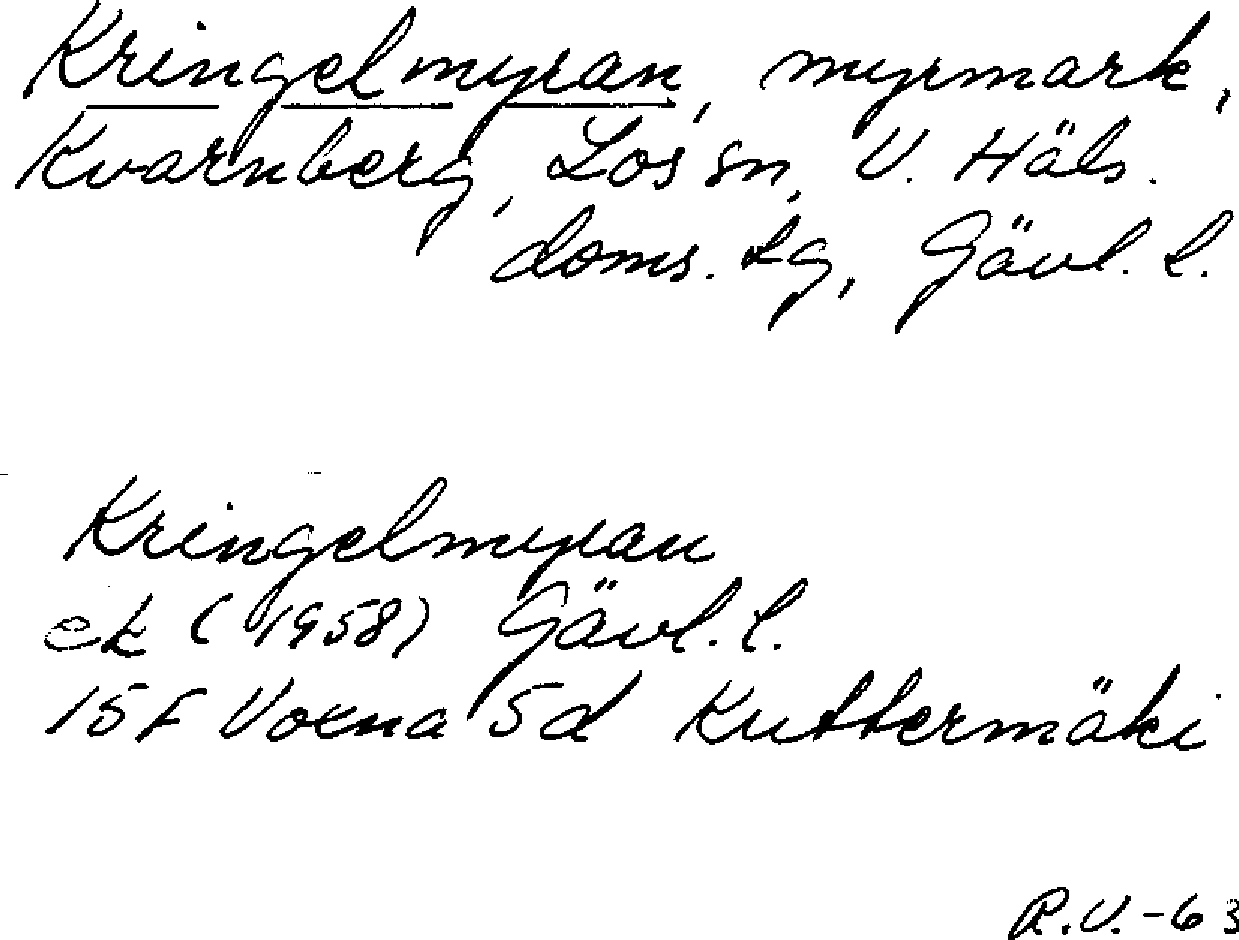 Kringelmyran, myrmark,
Kvarnberg, Los sn, V. Häls.
doms. lg, Gävl. l.
Kringelmyran
ek (1958) Gävl. l.
15F Voxna 5d Kuttermäki
R.V.-63